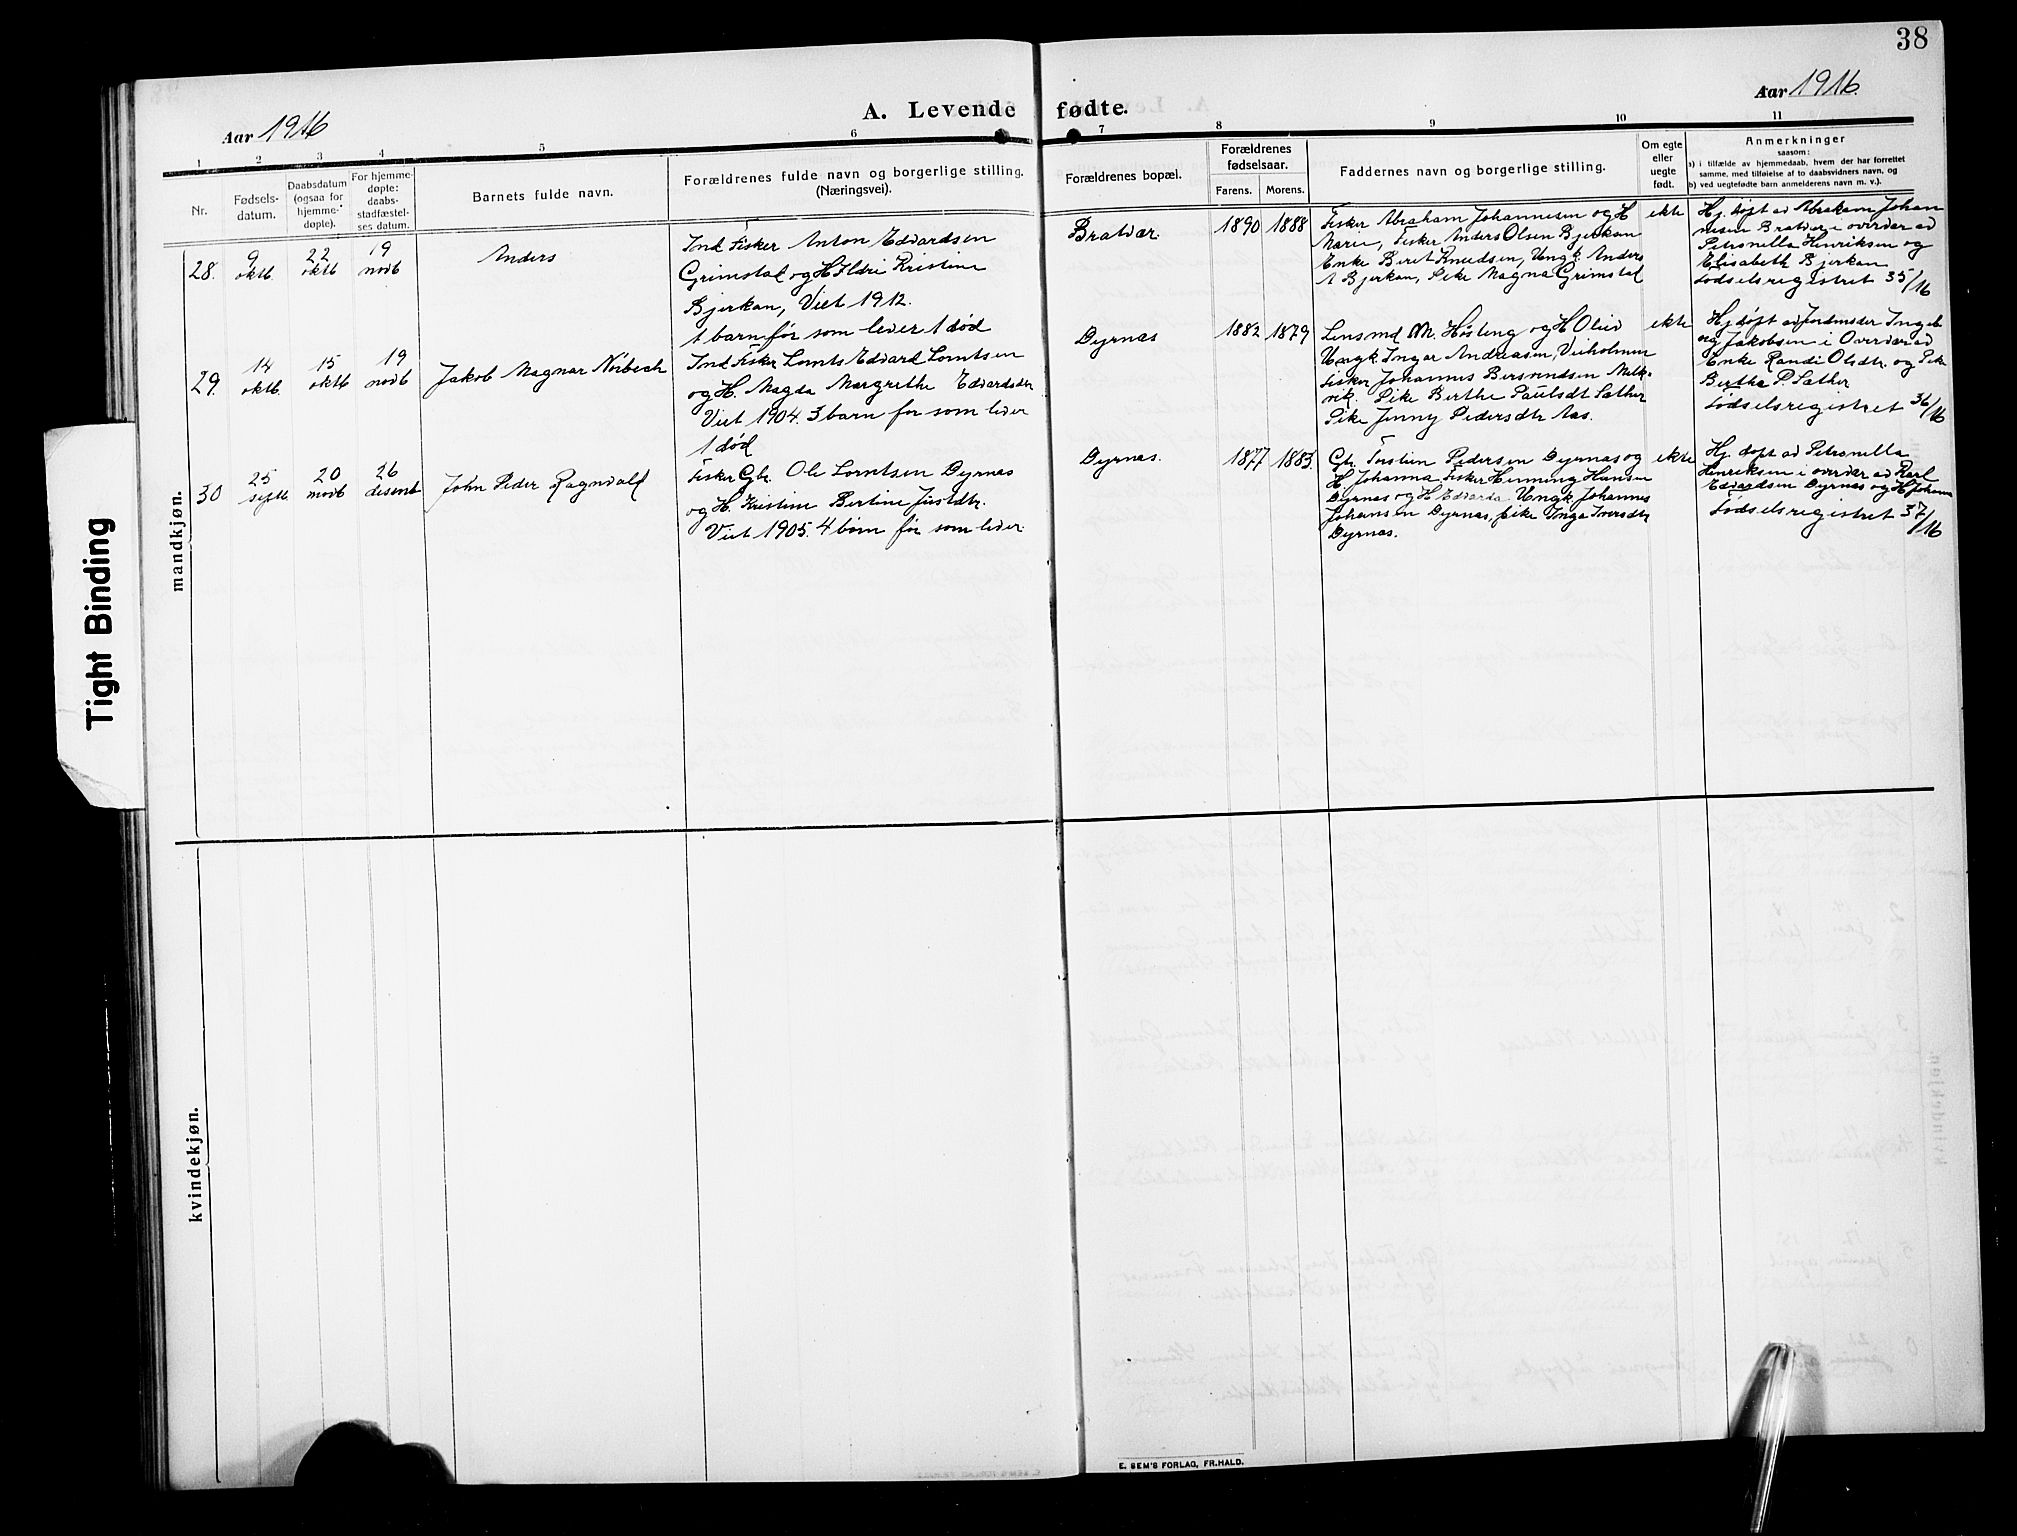 38
Aar 1916
A. Levende fødte.
Aar 1916.
1 2 3 4 5 6 7 8 9 10 11
Nr.
Fødsels-
datum.
Daabsdatum
(ogsaa for
hjemme-
døpte).
For hjemme-
døpte:
daabs-
stadfæstel-
ses datum.
Barnets fulde navn.
Forældrenes fulde navn og borgerlige stilling.
(Næringsvei).
Forældrenes bopæl.
Forældrenes
fødselsaar.
Farens. Morens.
Faddernes navn og borgerlige stilling.
Om egte
eller
uegte
født.
Anmerkninger
saasom:
a) i tilfælde av hjemmedaab, hvem der har forrettet
samme, med tilføielse af to daabsvidners navn, og
b) ved uegtefødte barn anmelderens navn m. v.).
mandkjøn.
28.
9
oktb.
22
oktb
19
novb
Anders
Ind Fisker Anton Edvardsen
Grimstad og H Ildri Kristine
Bjerkan, Viet 1912.
1 barn før som lever 1 død
Bratvær.
1890 1888
Fisker Abraham Johannesen og H
Marie, Fisker Anders Olsen Bjerkan
Enke Beret Knudsen, Ungk. Anders
A Bjerkan, Pike Magna Grimstad
ekte
Hj. døpt av Abraham Johan
nesen Bratvær i overvær av
Petronella Henriksen og
Elisabeth Bjerkan
Fødselsregistret 35/16
29.
14
oktb.
15
oktb
19
novb
Jakob Magnar Norbech
Ind Fisker Lornts Edvard Lorntsen
og H. Magda Margrethe Edvardsdtr
Viet 1904. 3 barn før som lever
1 død
Dyrnas
1882 1879
Lensmd M. Høsteng og H Oliv
Ungk. Ingvar Andreasen, Veiholmen
Fisker Johannes Bersvendsen Melk-
vik. Pike Berthe Paulsdt Sæther
Pike Jenny Pedersdtr Aas.
ekte
Hj døpt av Jordmoder Ingeb
org Jakobsen i Overvær av
Enke Randi Olsdtr. og Pike
Bertha P. Sæther
Fødselsregistret 36/16
30
25
septb.
20
novb
26
desemb
John Peder Ragnvald
Fisker Gbr. Ole Lorntsen Dyrnas
og H. Kristine Bertine Justdtr.
Viet 1905. 4 børn før som lever.
Dyrnas.
1877 1883.
Gbr. Torstein Pedersen Dyrnas og
H Johanna Fisker Henning Hansen
Dyrnas og H Edvarda. Ungk Johannes
Johansen Dyrnas, pike Inga Iversdtr
Dyrnas.
ekte
Hj. døpt av Petronella
Henriksen i overvær av Karl
Edvardsen Dyrnas og H Johanna
Fødselsregistret 37/16
kvindekjøn.
Tight Binding
E. SEM'S FORLAG, FR.HALD.